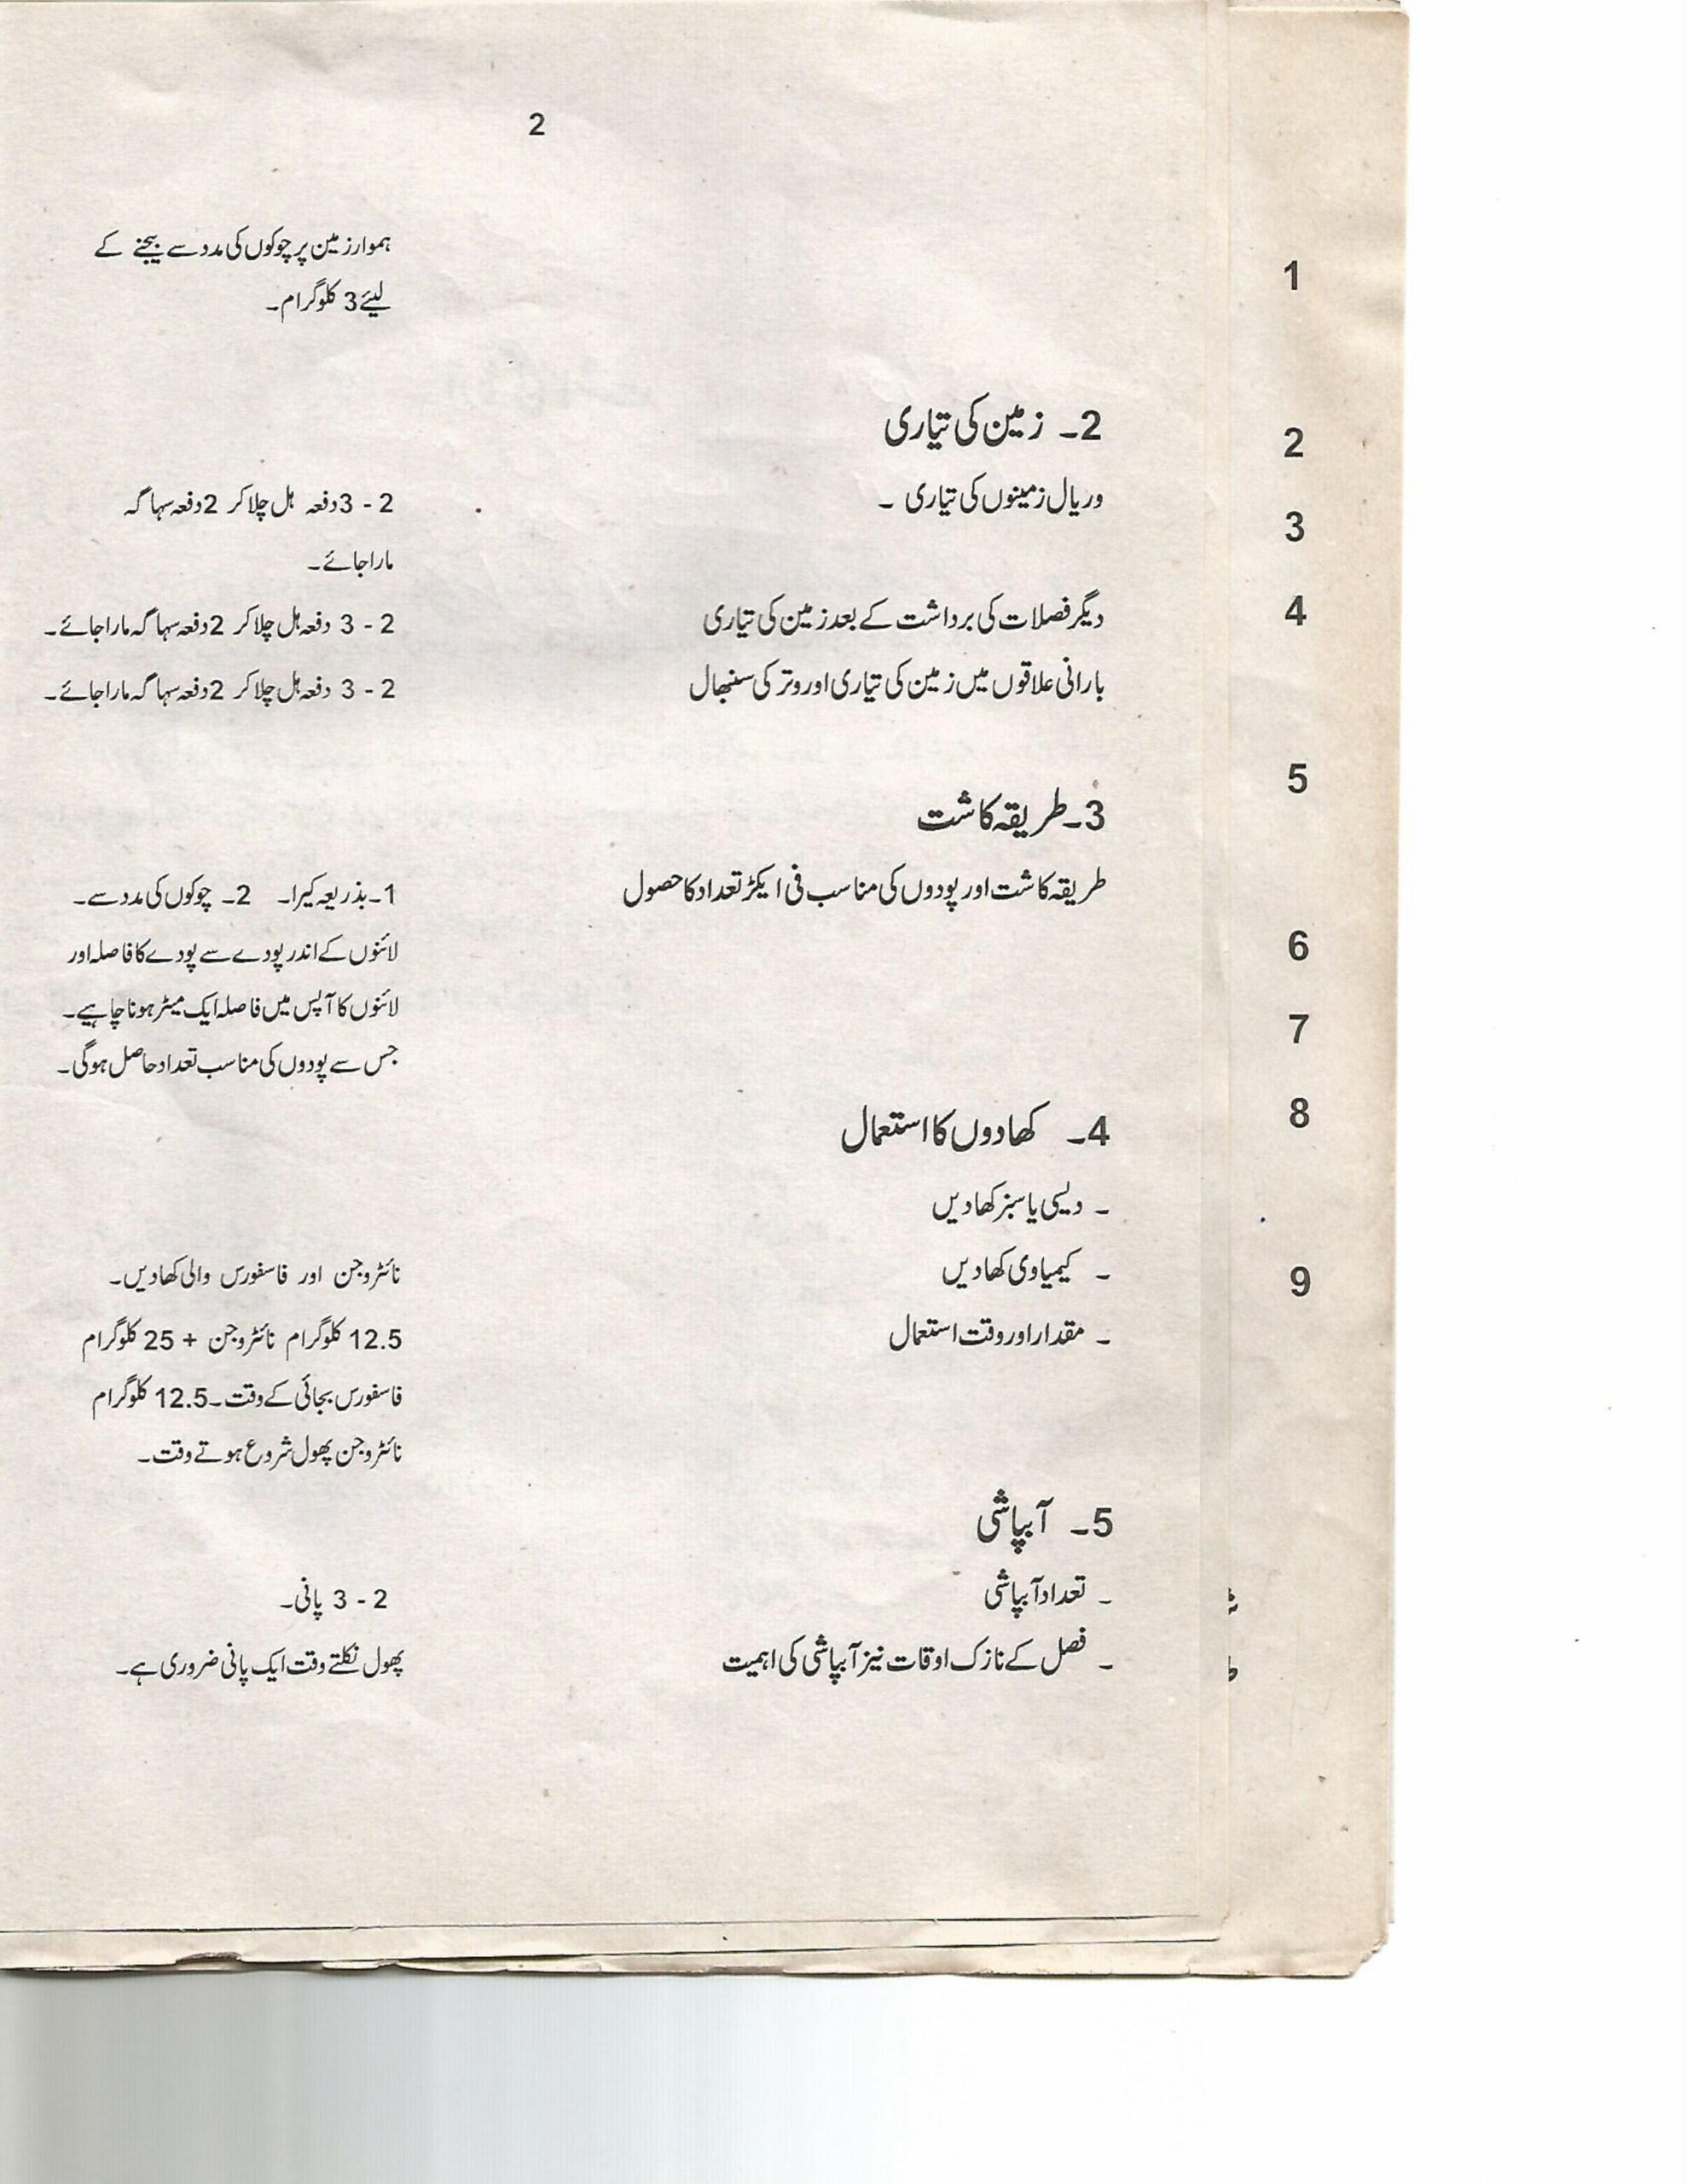 2
ہموار زمین پر چوکوں کی مدد سے بیجنے کے
لیئے 3 کلوگرام۔
2۔ زمین کی تیاری
وریال زمینوں کی تیاری ۔
2 - 3 دفعہ ہل چلا کر 2 دفعہ سہاگہ
مارا جائے۔
دیگر فصلات کی برداشت کے بعد زمین کی تیاری
2 - 3 دفعہ ہل چلا کر 2 دفعہ سہاگہ مارا جائے۔
بارانی علاقوں میں زمین کی تیاری اور وتر کی سنبھال
2 - 3 دفعہ ہل چلا کر 2 دفعہ سہاگہ مارا جائے۔
3۔ طریقہ کاشت
طریقہ کاشت اور پودوں کی مناسب فی ایکڑ تعداد کا حصول
1۔ بذریعہ کیرا۔ 2۔ چوکوں کی مدد سے۔
لائنوں کے اندر پودے سے پودے کا فاصلہ اور
لائنوں کا آپس میں فاصلہ ایک میٹر ہونا چاہیے۔
جس سے پودوں کی مناسب تعداد حاصل ہوگی۔
4۔ کھادوں کا استعمال
۔ دیسی یا سبز کھادیں
۔ کیمیاوی کھادیں
نائٹروجن اور فاسفورس والی کھادیں۔
۔ مقدار اور وقت استعمال
12.5 کلوگرام نائٹروجن + 25 کلوگرام
فاسفورس بجائی کے وقت۔ 12.5 کلوگرام
نائٹروجن پھول شروع ہوتے وقت۔
5۔ آبپاشی
۔ تعداد آبپاشی
2 - 3 پانی۔
۔ فصل کے نازک اوقات نیز آبپاشی کی اہمیت
پھول نکلتے وقت ایک پانی ضروری ہے۔
1
2
3
4
5
6
7
8
9